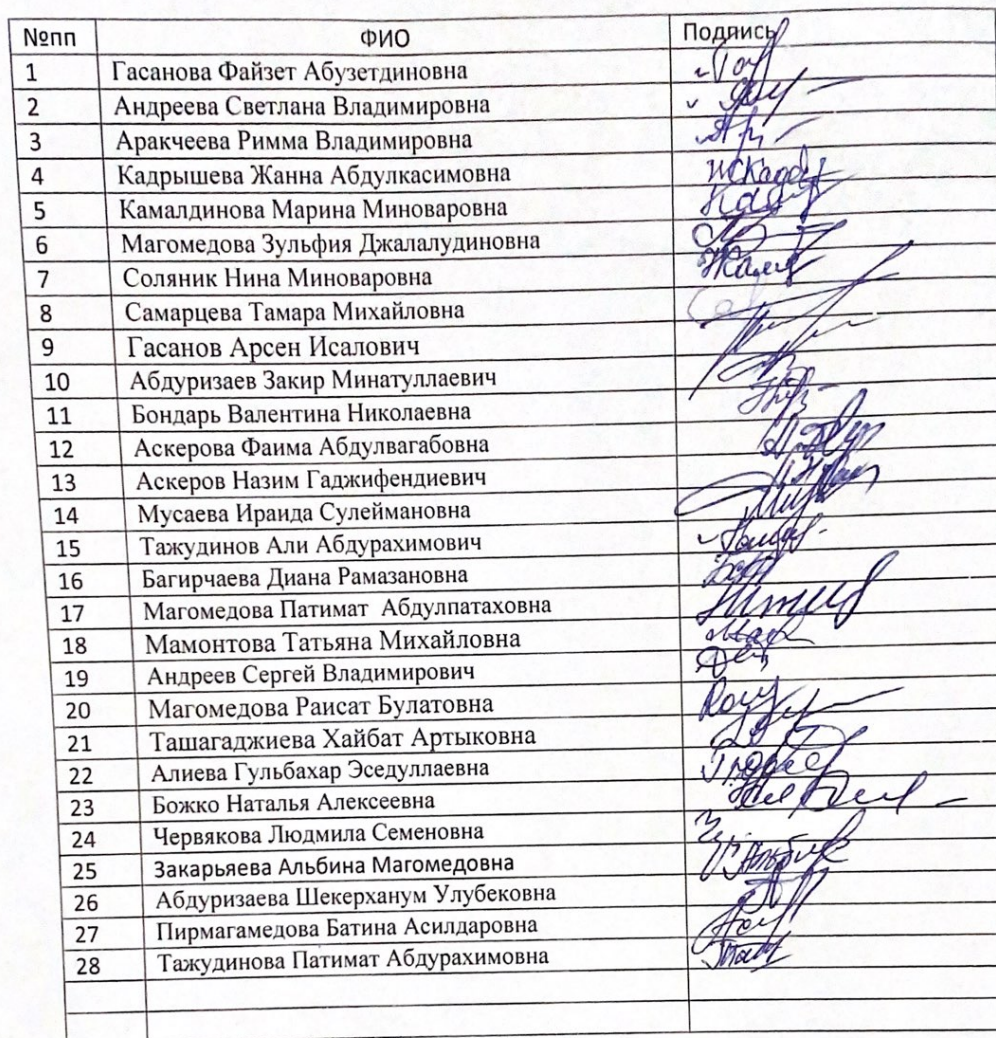 №пп ФИО Подпись
1 Гасанова Файзет Абузетдиновна
2 Андреева Светлана Владимировна
3 Аракчеева Римма Владимировна
4 Кадрышева Жанна Абдулкасимовна
5 Камалдинова Марина Миноваровна
6 Магомедова Зульфия Джалалудиновна
7 Соляник Нина Миноваровна
8 Самарцева Тамара Михайловна
9 Гасанов Арсен Исалович
10 Абдуризаев Закир Минатуллаевич
11 Бондарь Валентина Николаевна
12 Аскерова Фаима Абдулвагабовна
13 Аскеров Назим Гаджифендиевич
14 Мусаева Ираида Сулеймановна
15 Тажудинов Али Абдурахимович
16 Багирчаева Диана Рамазановна
17 Магомедова Патимат Абдулпатаховна
18 Мамонтова Татьяна Михайловна
19 Андреев Сергей Владимирович
20 Магомедова Раисат Булатовна
21 Ташагаджиева Хайбат Артыковна
22 Алиева Гульбахар Эседуллаевна
23 Божко Наталья Алексеевна
24 Червякова Людмила Семеновна
25 Закарьяева Альбина Магомедовна
26 Абдуризаева Шекерханум Улубековна
27 Пирмагамедова Батина Асилдаровна
28 Тажудинова Патимат Абдурахимовна